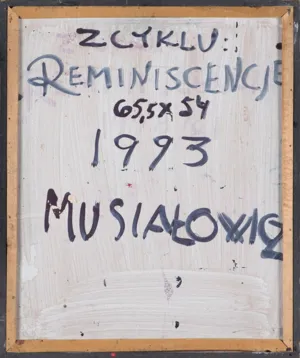 Z CYKLU:
REMINISCENCJE
65,5 x 54
1993
MUSIAŁOWICZ